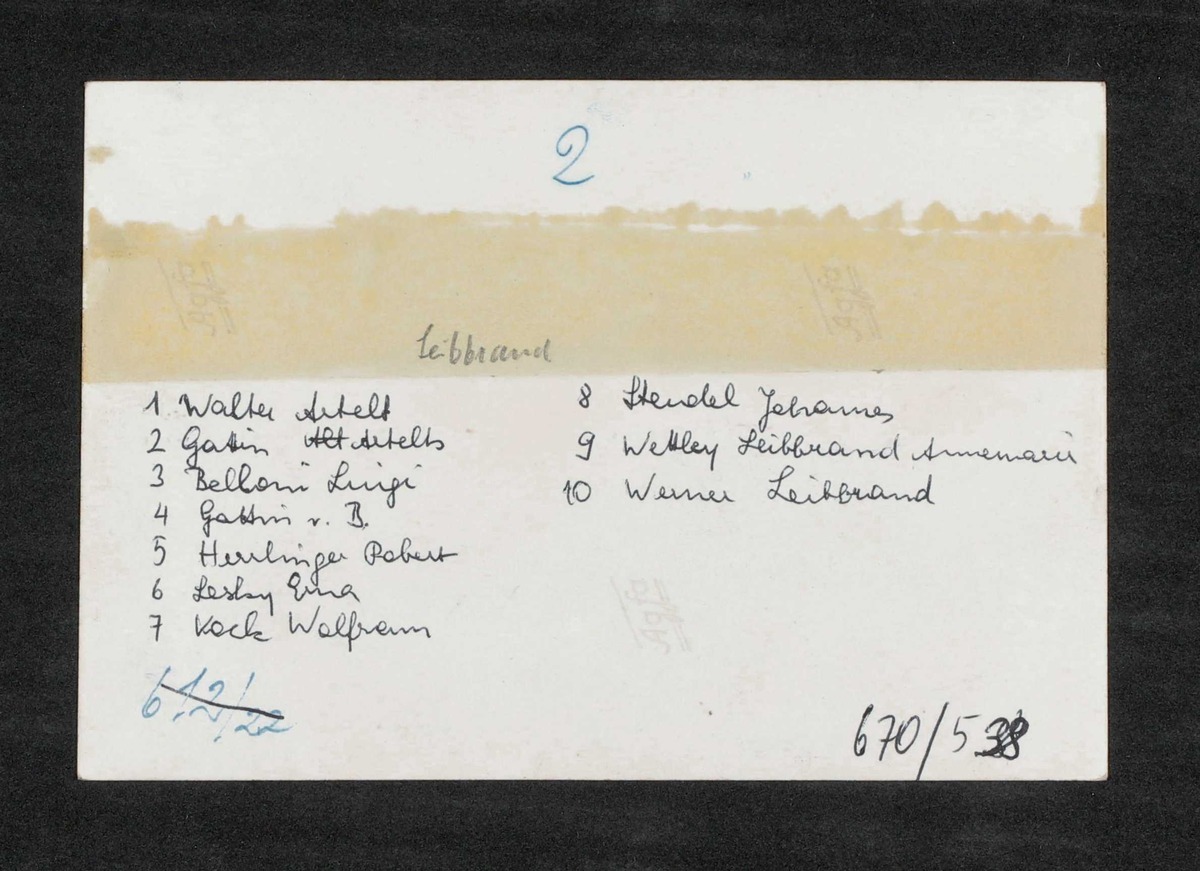 2
Agfa Agfa
Leibbrand
1 Walter Artelt
2 Gattin Alt Artelts
3 Belloni Luigi
4 Gattin v. B.
5 Herrlinger Robert
6 Lesky Erna
7 Kock Wolfram
8 Stendel Johannes
9 Wettley Leibbrand Annemarie
10 Werner Leibbrand
Agfa
612/22
670/538